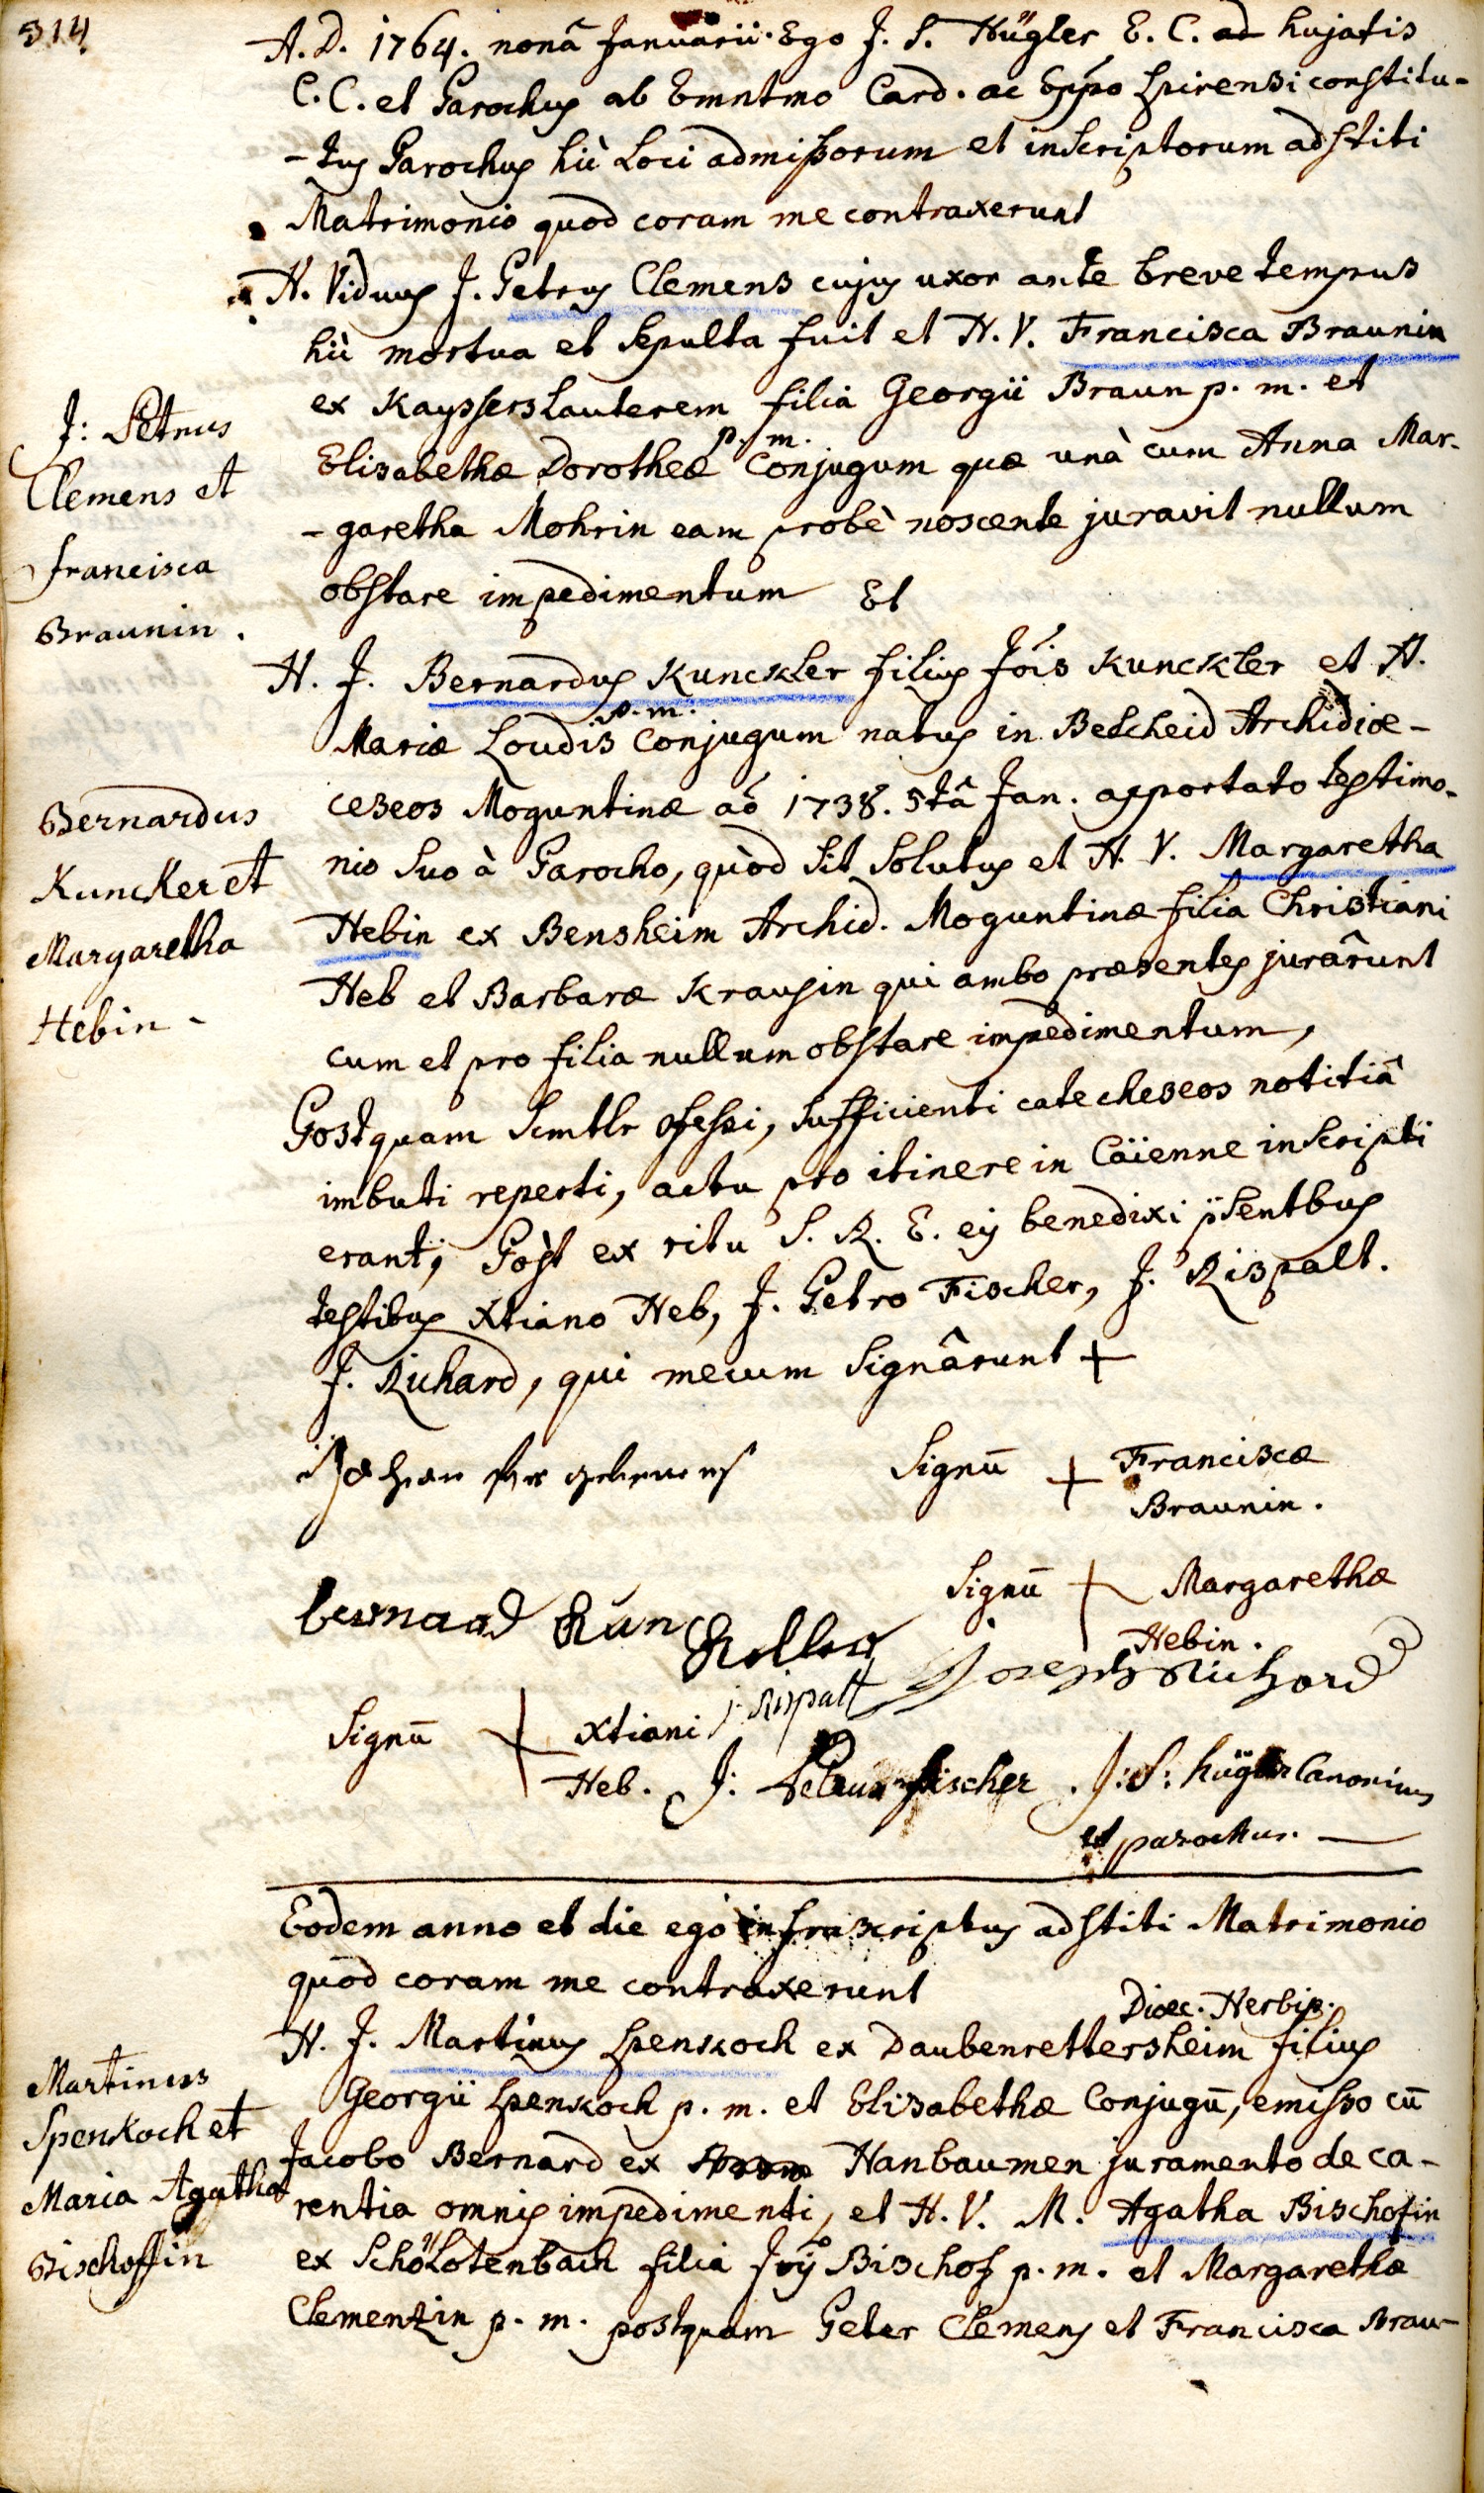 314
A. D. 1764. nonâ Januarii. Ego J. S. Hügler E. C. ad hujatis
C. C. et Parochus ab Emntmo Card. ac Eppo Spirensi constitu-
-tus Parochus hic Loci admissorum et inscriptorum adstiti
Matrimonio quod coram me contraxerunt
H. Viduus J. Petrus Clemens cujus uxor ante breve tempus
hic mortua et sepulta fuit et H. V. Francisca Braunin
ex Kaysserslauterem filia Georgii Braun p. m. et
Elisabethæ Dorotheæ p. m. Conjugum quæ unà cum Anna Mar-
-garetha Mohrin eam probè noscente juravit nullum
obstare impedimentum Et
J: Petrus
Clemens et
francisca
Braunin.
H. J. Bernardus Kunckler filius Jois Kunckler et A.
Mariæ Loudis p. m. Conjugum natus in Betcheid Archidiœ-
ceseos Moguntinæ aõ 1738. 5tâ Jan. apportato testimo-
nio suo à Parocho, quòd sit solutus et H. V. Margaretha
Hebin ex Bensheim Archid. Moguntinæ filia Christiani
Heb et Barbaræ Krausin qui ambo præsentes jurârunt
cum et pro filia nullum obstare impedimentum,
Bernardus
Kuncker et
Margaretha
Hebin -
Postquam scmtlr Ofessi, sufficienti catecheseos notitiâ
imbuti reperti, actu pro itinere in Caïenne inscripti
erant; Pòst ex ritu S. R. E. eis benedixi psentbus
testibus Xtiano Heb, J. Petro Fischer, J. Rispalt.
J. Richard, qui mecum signârunt +
Signū + Franciscæ
Braunin.
bernaad Kun
Keller
Signū + Margarethæ
Hebin.
Joseph Richard
j. Rispalt
Signū + Xtiani
Heb. J: Petrus fischer J: S: hügler Canonicus
et parochus. —
Eodem anno et die ego infrascriptus adstiti Matrimonio
quod coram me contraxerunt
H. J. Martinus Spenkoch ex Daubenrettersheim Diœc. Herbip. filius
Georgii Spenkoch p. m. et Elisabethæ Conjugū, emisso cū
Jacobo Bernard ex Hanbaumen juramento de ca-
rentia omnis impedimenti, et H. V. M. Agatha Bischofin
ex Schölotenbach filia Jois Bischof p. m. et Margarethæ
Clementzin p. m. postquam Peter Clemens et Francisca Brau-
Martinus
Spenkoch et
Maria Agatha
Bischoffin